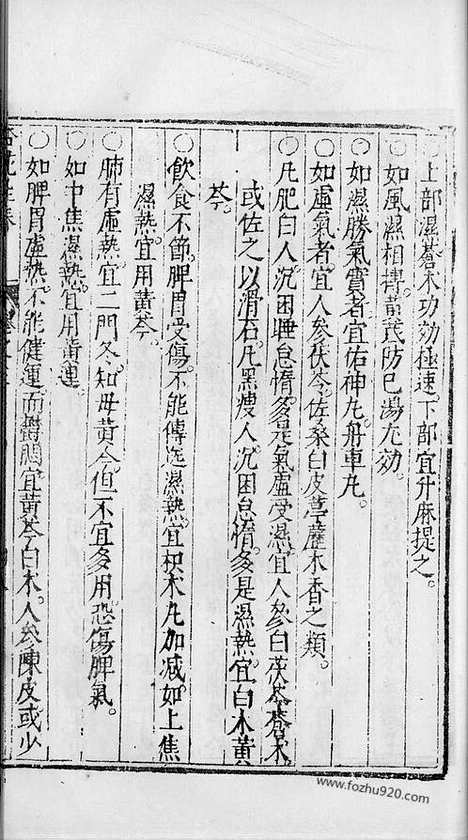 ○上部濕蒼朮功効極速下部宜升麻提之。
○如風濕相搏黃芪防已湯尤効。
○如濕勝氣實者宜佑神丸舟車丸。
○如虛氣者宜人參茯苓佐桑白皮葶藶木香之類。
○凡肥白人沉困睡怠惰多是氣虛受濕宜人參白茯苓蒼朮
或佐之以滑石凡黑瘦人沉困怠惰多是濕熱宜白朮黃
芩。
○飲食不節脾胃受傷不能傳送濕熱宜枳朮丸加減如上焦
濕熱宜用黃芩。
○肺有虛熱宜二門冬知母黃今但不宜多用恐傷脾氣。
○如中焦濕熱宜用黃連
○如脾胃虛熱不能健運而鬱悶宜黃芩白朮人參陳皮或少
www.fozhu920.com